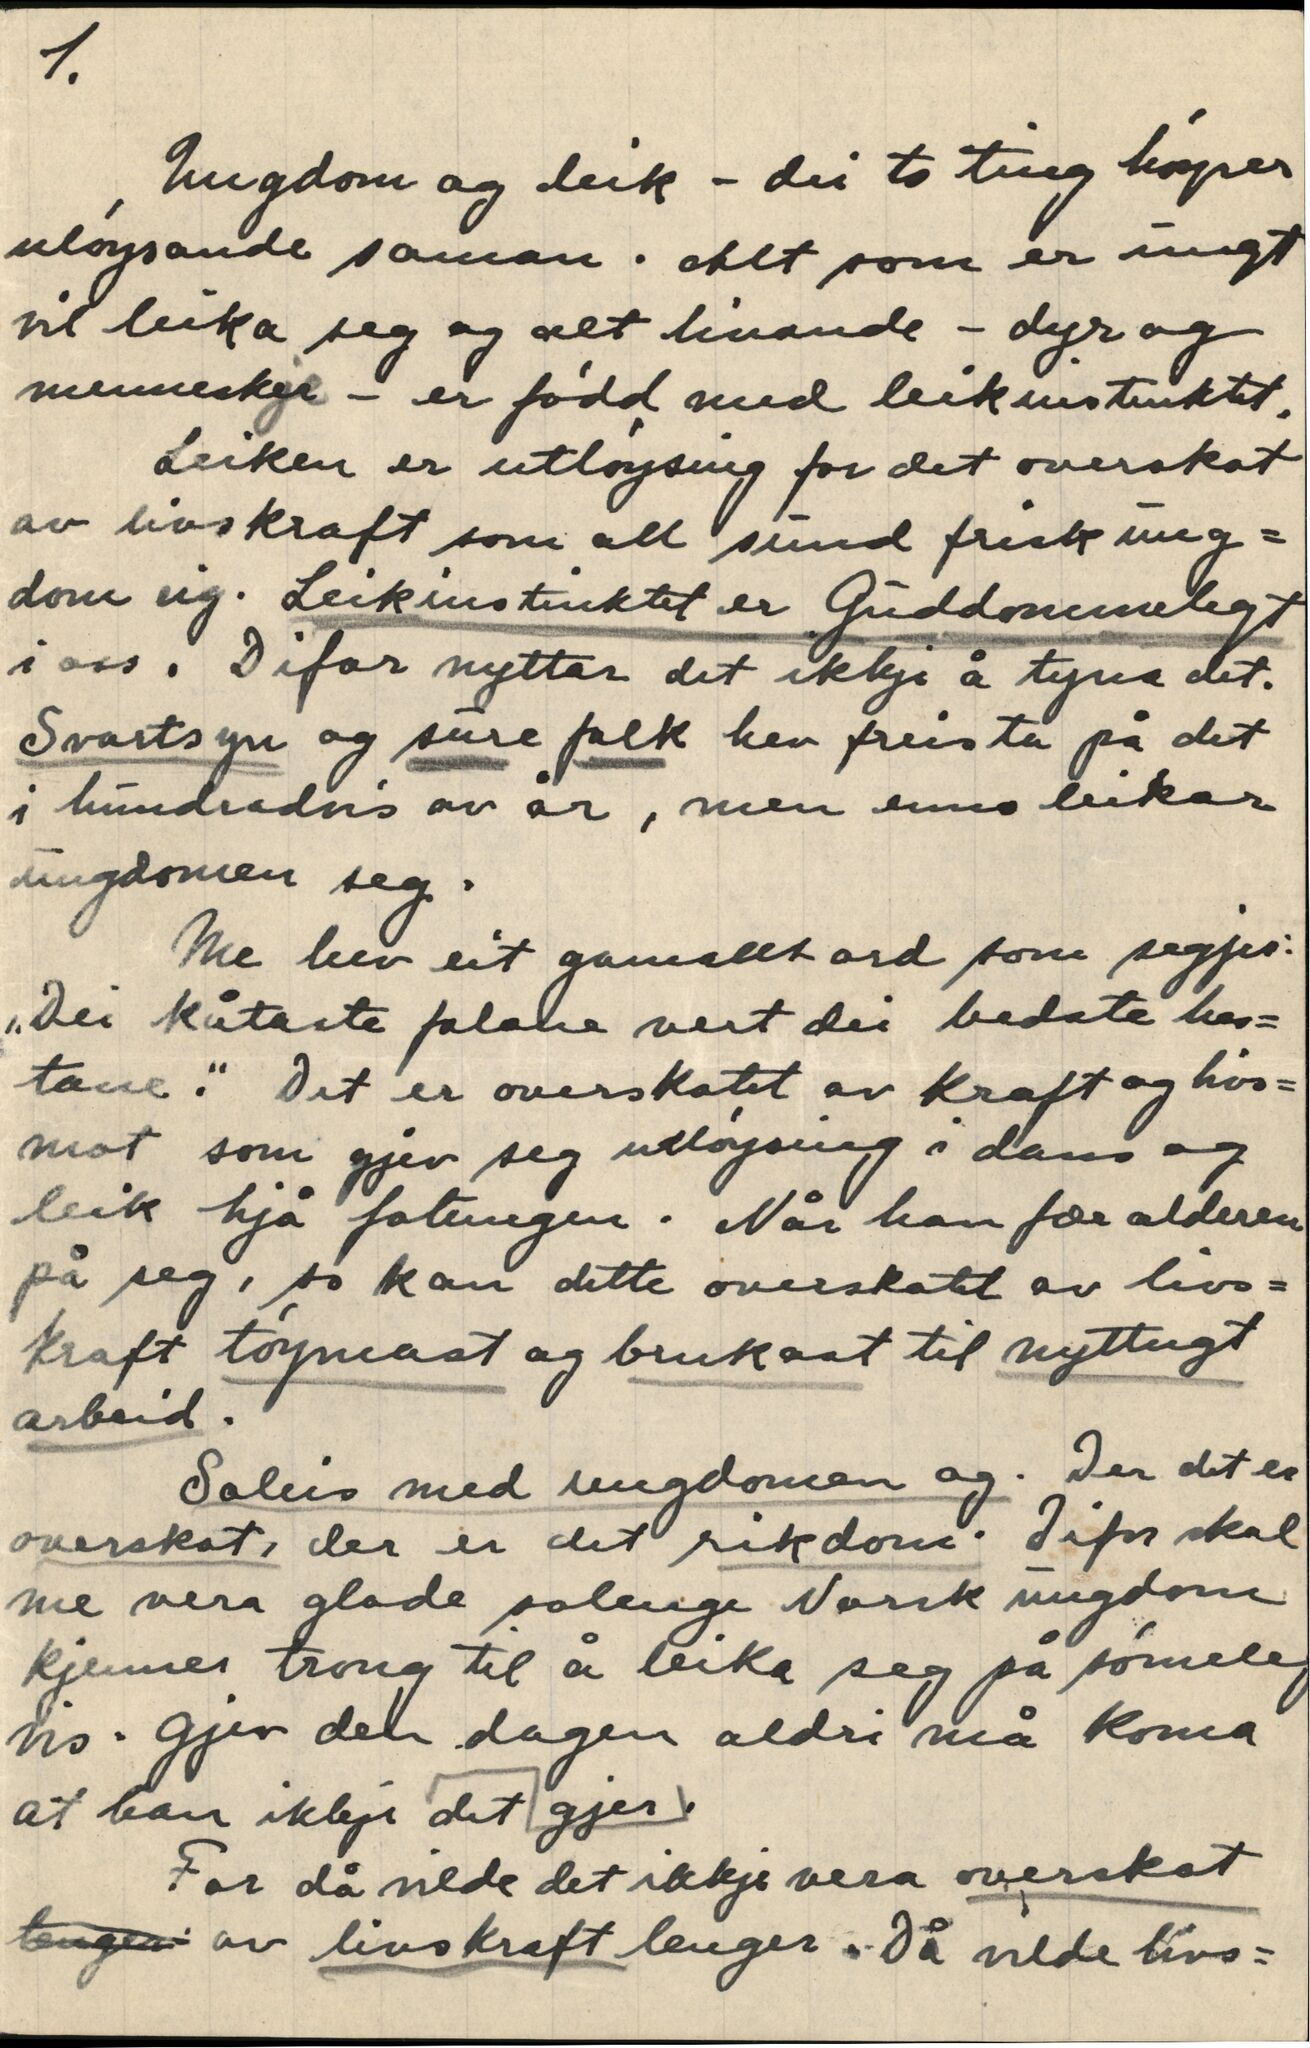 1.
Ungdom og leik - dei to ting høyrer
uløysande saman. Alt som er ungt
vil leika seg og alt livande - dyr og
menneskje - er fødd med leikinstinktet.
Leiken er utløysing for det overskot
av livskraft som all sund frisk ung=
dom eig. Leikinstinktet er Guddommelegt
i oss. Difor nyttar det ikkje å tyna det.
Svartsyn og sure folk hev freista på det
i hundradvis av år, men enno leikar
ungdomen seg.
Me hev eit gamallt ord som segjer:
"Dei kåtaste folane vert dei bedste hes=
tane." Det er overskotet av kraft og livs=
mot som gjev seg utløysing i dans og
leik hjå folungen. Når han fær alderen
på seg, so kan dette overskotet av livs=
kraft tøymast og brukast til nyttugt
arbeid.
Soleis med ungdomen og. Der det er
overskot, der er det rikdom. Difor skal
me vera glade solenge Norsk ungdom
kjenner trong til å leika seg på sømeleg
vis. Gjev den dagen aldri må koma
at han ikkje det gjer.
For då vilde det ikkje vera overskot
lenger av livskraft lenger. Då vilde livs=